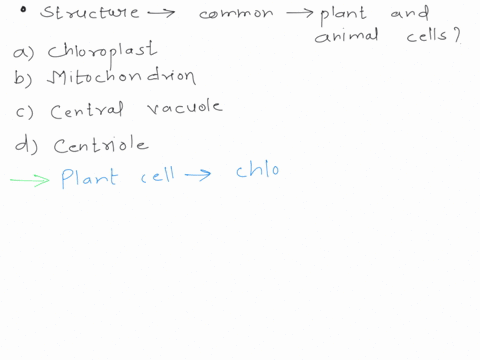 • Structure → common → plant and
animal cells?
a) Chloroplast
b) Mitochondrion
c) Central vacuole
d) Centriole
→ Plant cell → chlo